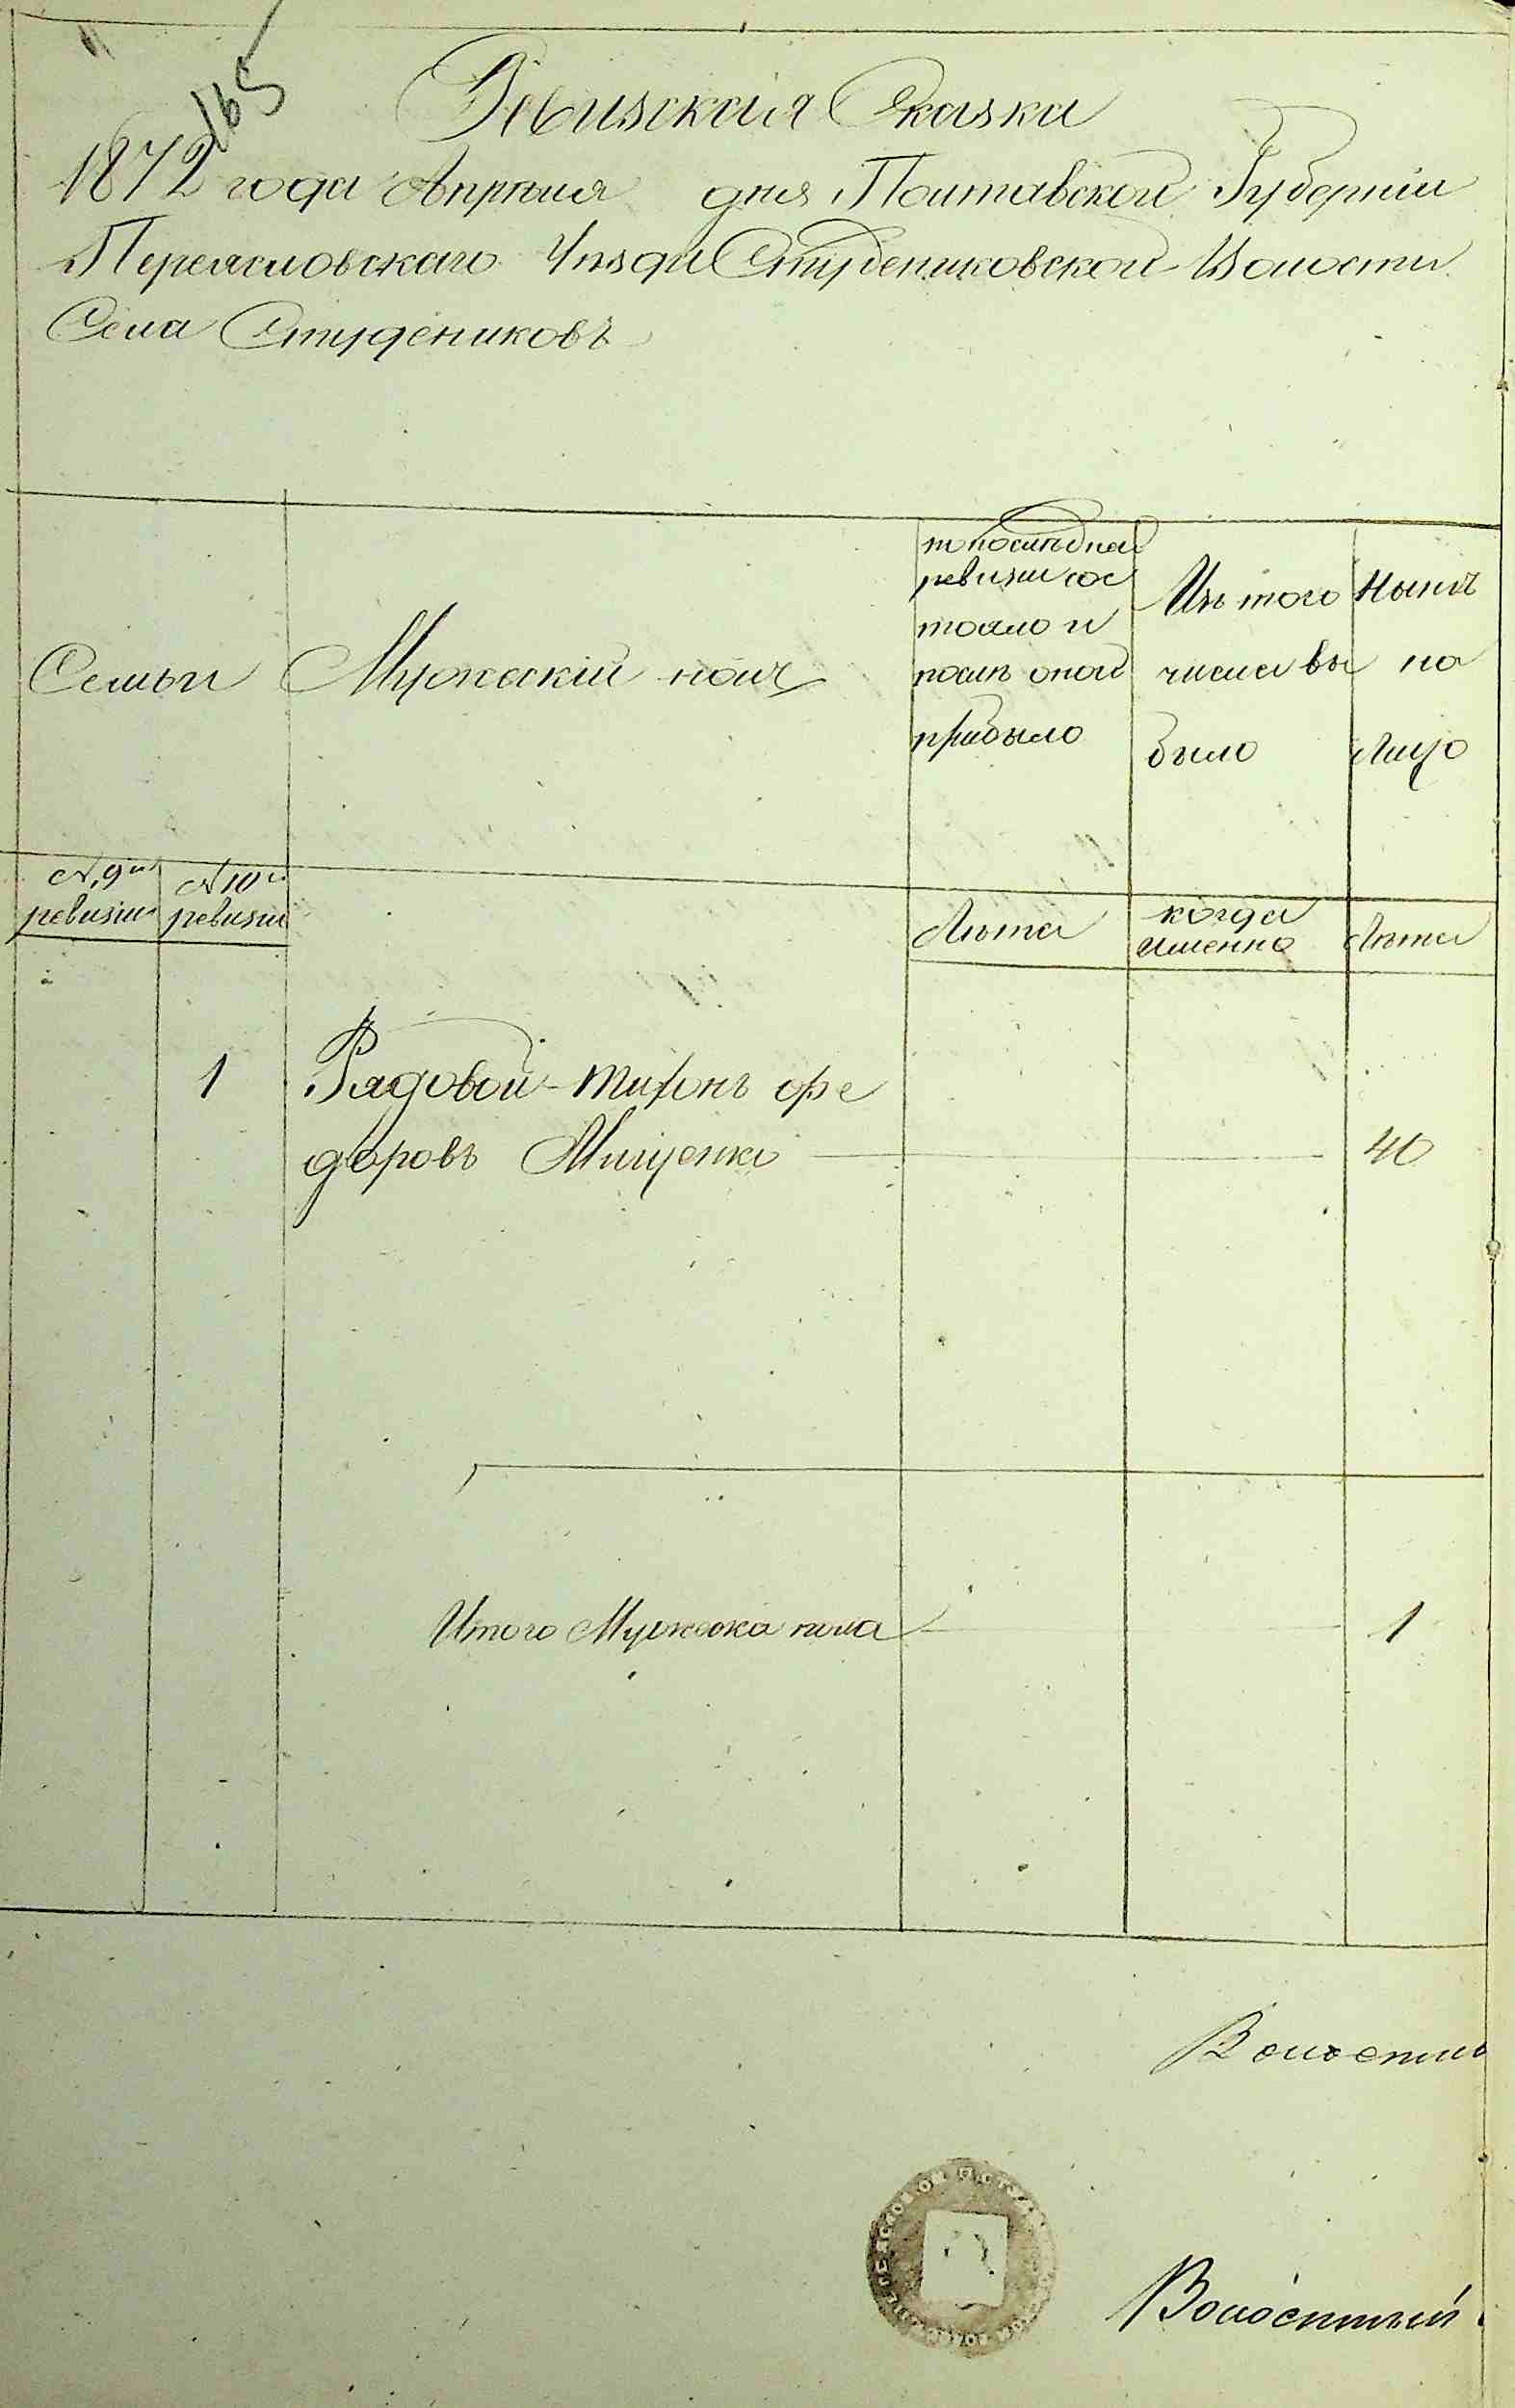 165
Ревизская Сказка
1872 года Апреля дня Полтавской Губерніи
Переясловскаго Уезда Студениковской Волости
Села Студениковъ
Семьи
Мужескій полъ
по последней
ревизіи сос
тояло и
после оной
прибыло
Изъ того
числа вы
было
Ныне
на
лицо
№ 9й
ревизіи
№ 10й
ревизіи
Лета
когда
именно
Лета
1
Рядовой Тихонъ Фе
доровъ Мищенко
40
Итого Мужеска пола
1
Волостно
Волостный